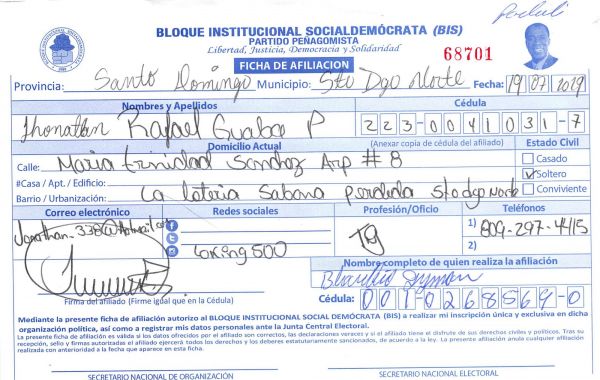 BLOQUE INSTITUCIONAL SOCIALDEMÓCRATA (BIS)
PARTIDO PEÑAGOMISTA
Libertad, Justicia, Democracia y Solidaridad
68701
FICHA DE AFILIACION
Provincia: Santo Domingo Municipio: Sto Dgo Norte Fecha: 19 07
Nombres y Apellidos Cédula
Jhonattan Rafael P 223-0041031-7
Domicilio Actual (Anexar copia de cédula del afiliado) Estado Civil
Calle: Maria trinidad Sanchez # 8
Casado
#Casa / Apt. / Edificio:
Soltero
Barrio / Urbanización: La loteria Sabana perdida Sto dgo Norte
Conviviente
Correo electrónico Redes sociales Profesión/Oficio Teléfonos
1) 809-297-4415
2)
Nombre completo de quien realiza la afiliación
Firma del afiliado (Firme igual que en la Cédula)
Cédula: 001-0268569-0
Mediante la presente ficha de afiliación autorizo al BLOQUE INSTITUCIONAL SOCIAL DEMÓCRATA (BIS) a realizar mi inscripción única y exclusiva en dicha
organización política, así como a registrar mis datos personales ante la Junta Central Electoral.
La presente ficha de afiliación es valida si los datos ofrecidos por el afiliado son correctos, las declaraciones veraces y si el afiliado tiene el disfrute de sus derechos civiles y políticos. Tras su
recepción, sello y firmas autorizadas el afiliado ejercerá todos los derechos y los deberes estatutariamente sancionados, de acuerdo a la ley. La presente afiliación anula cualquier afiliación
realizada con anterioridad a la fecha que aparece en esta ficha.
SECRETARIO NACIONAL DE ORGANIZACIÓN SECRETARIO NACIONAL DE